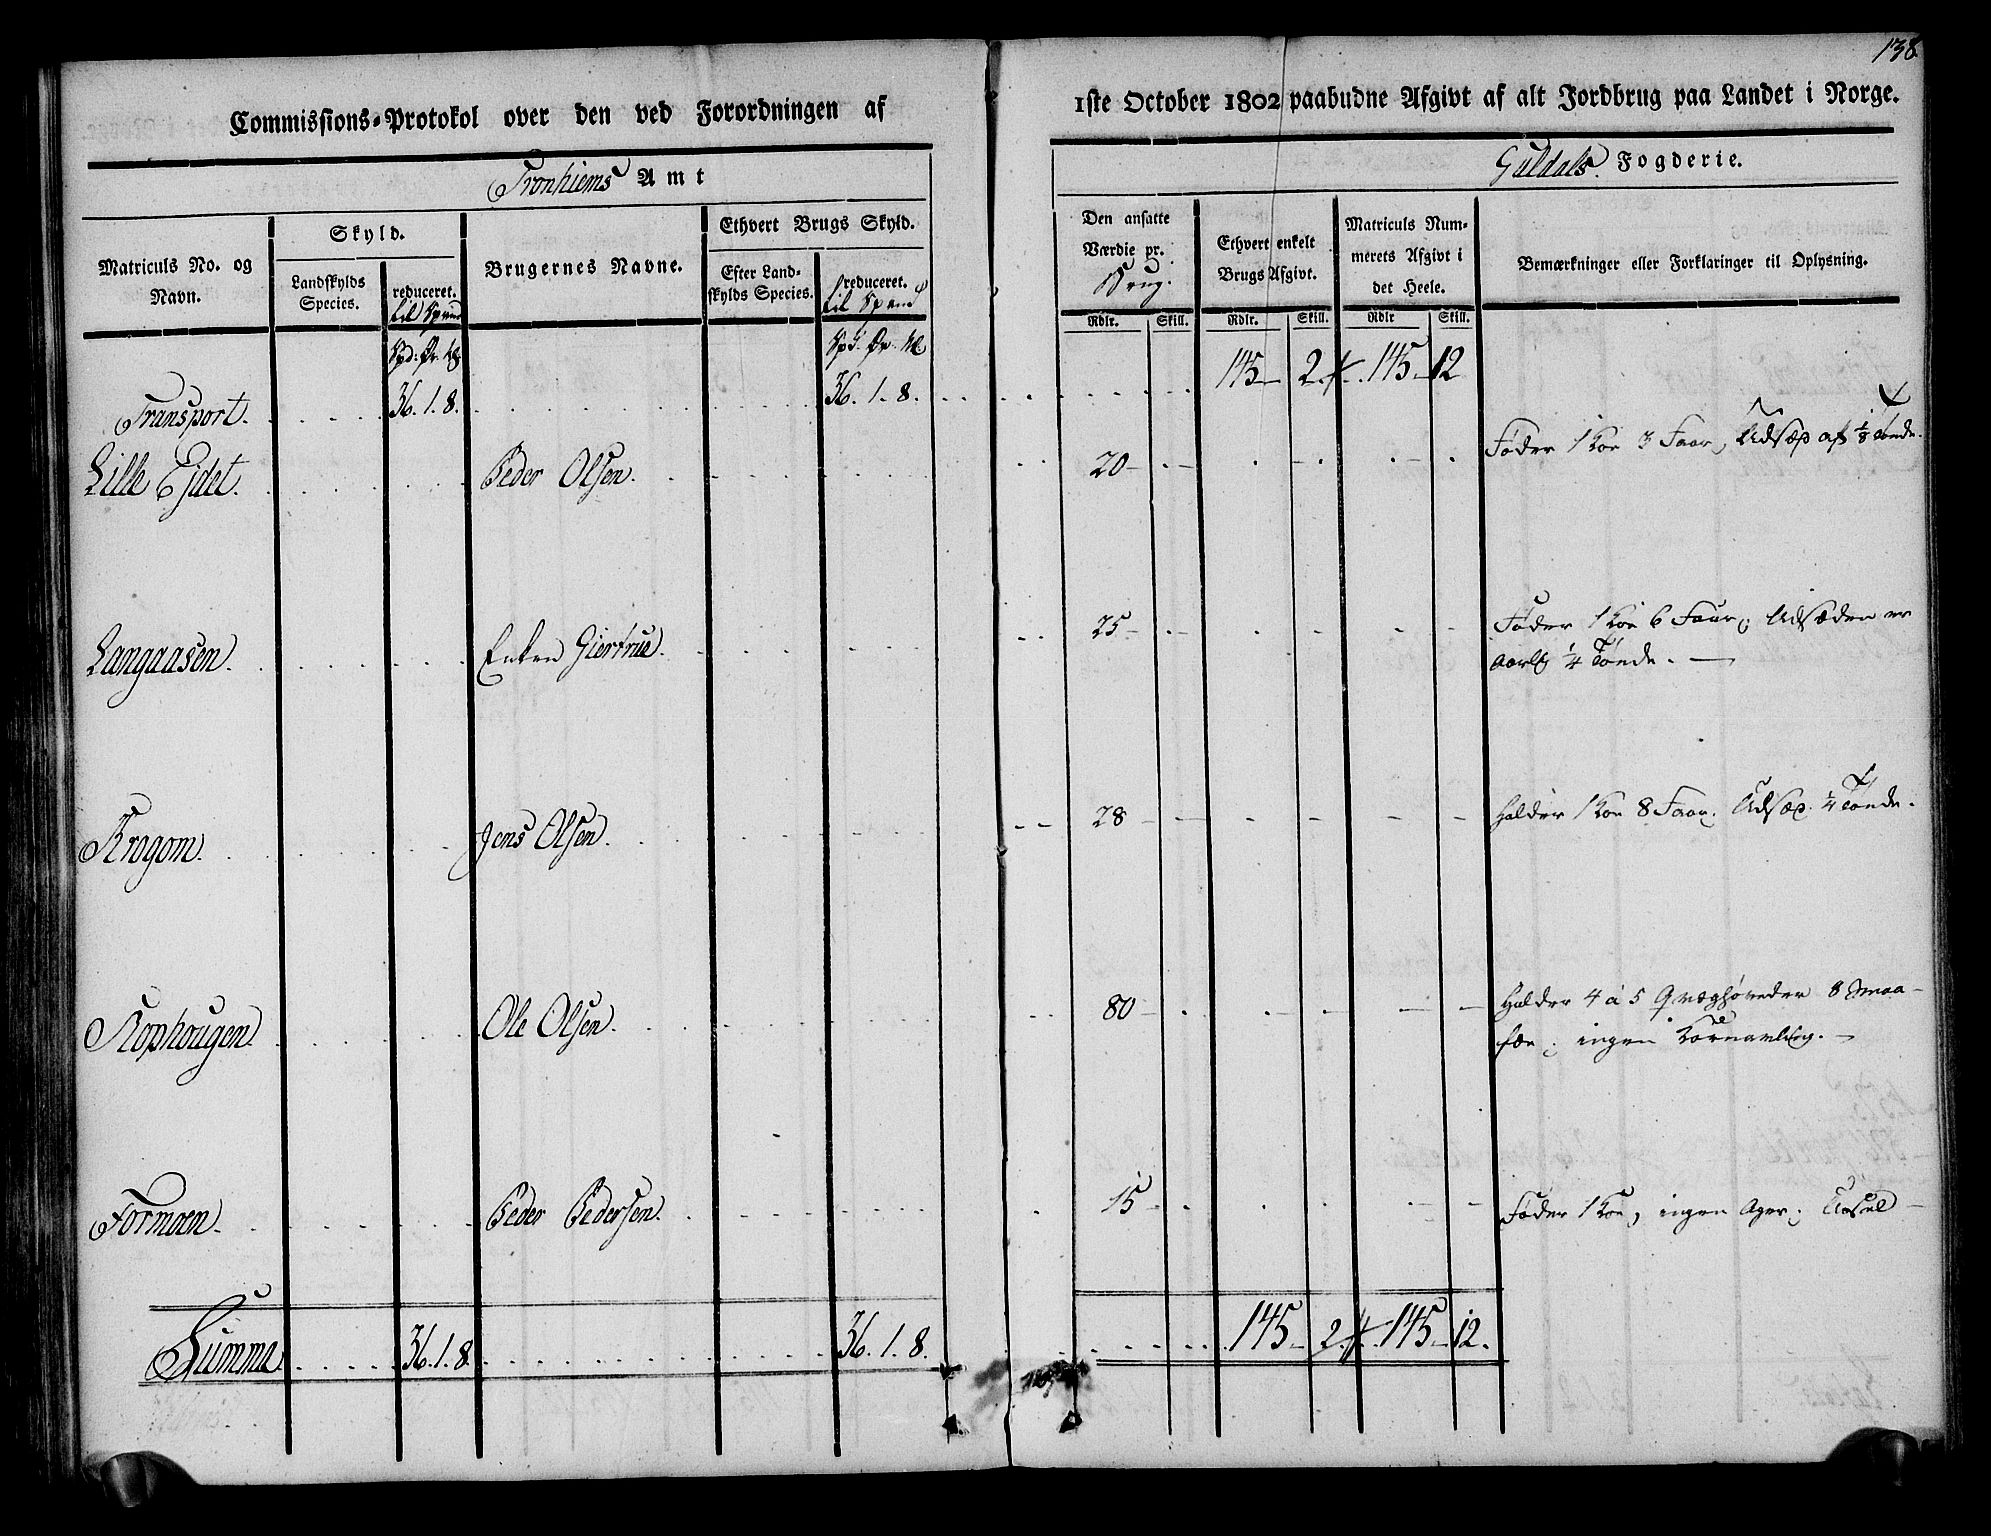 138
Commissions-Protokol over den ved Forordningen af 1ste October 1802 paabudne Afgivt af alt Jordbrug paa Landet i Norge.
Tronhiems Amt
Guldals Fogderie.
Matriculs No. og Navn.
Skyld.
Landskylds Species.
reduceret. til Spand
Brugernes Navne.
Ethvert Brugs Skyld.
Efter Landskylds Species.
reduceret. til Spand
Den ansatte Værdie pr. Brug.
Ethvert enkelt Brugs Afgivt.
Matriculs Nummerets Afgivt i det Heele.
Bemærkninger eller Forklaringer til Oplysning.
Rdlr. Skill. Rdlr. Skill. Rdlr Skill.
Transport. 36. 1. 8. 36. 1. 8. 145 2 145 12
Lille Ejdet. Peder Olsen. 20 Føder 1 Koe 3 Faar, Udsæd af 1/8 Tønde.
Langaasen. Enken Giertrue. 25 Føder 1 Koe 6 Faar; Udsæden er
aarlig 1/4 Tønde.
Krogom. Jens Olsen. 28 Holder 1 Koe 8 Faar. Udsæd 1/4 Tønde.
Kophougen. Ole Olsen. 80 Holder 4 à 5 Qvæghøveder 8 Smaa-
fæe; ingen Kornavling.
Formoen. Peder Pedersen. 15 Føder 1 Koe, ingen Ager;
Summa 36. 1. 8. 36. 1. 8. 145 2 145 12.